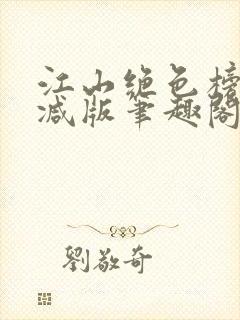 江山绝色榜
减版笔趣阁
劉敬奇